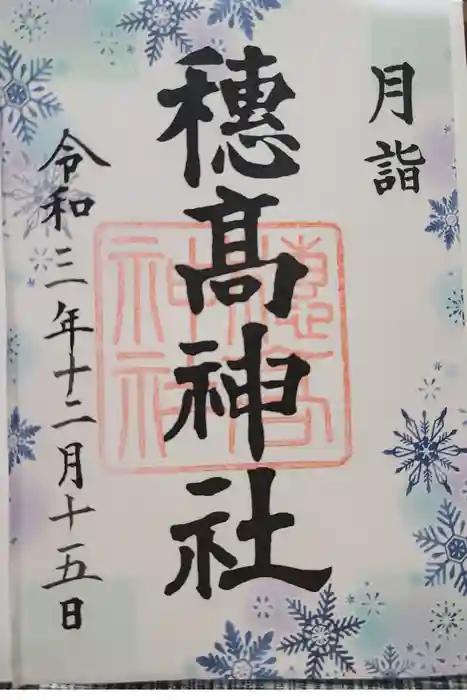 月詣
穗髙神社
令和三年十二月十五日
穗髙神社